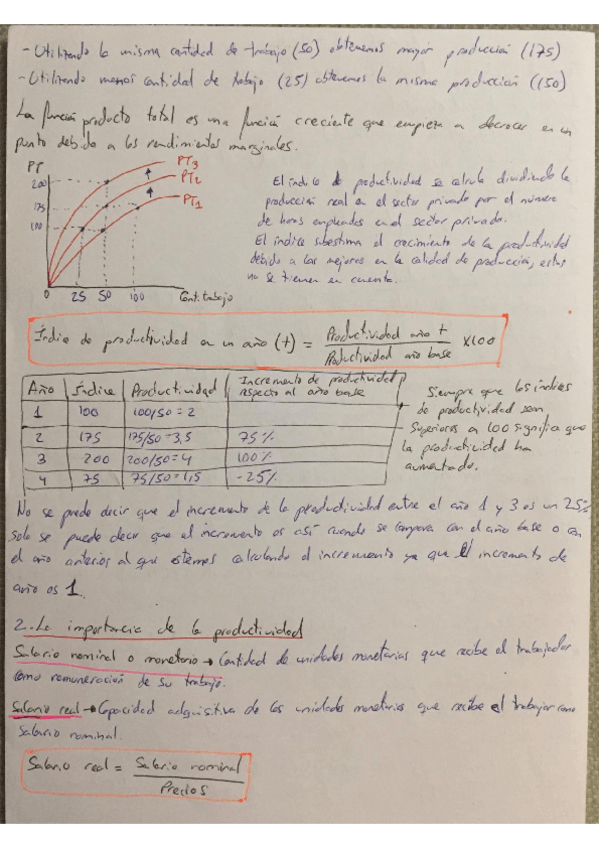 - Utilizando la misma cantidad de trabajo (50) obtenemos mayor producción (175)
- Utilizando menos cantidad de trabajo (25) obtenemos la misma producción (150)
La función producto total es una función creciente que empieza a decrecer en un
punto debido a los rendimientos marginales.
PT
200
175
100
0 25 50 100 Cant. trabajo
PT3
PT2
PT1
El índice de productividad se calcula dividiendo la
producción real en el sector privado por el número
de horas empleadas en el sector privado.
El índice subestima el crecimiento de la productividad
debido a las mejoras en la calidad de producción, estas
no se tienen en cuenta.
Índice de productividad en un año (t) = Productividad año t / Productividad año base x100
Año | Índice | Productividad | Incremento de productividad respecto al año base
1 | 100 | 100/50 = 2
2 | 175 | 175/50 = 3,5 | 75%
3 | 200 | 200/50 = 4 | 100%
4 | 75 | 75/50 = 1,5 | -25%
Siempre que los índices
de productividad sean
superiores a 100 significa que
la productividad ha
aumentado.
No se puede decir que el incremento de la productividad entre el año 1 y 3 es un 25%
solo se puede decir que el incremento es así cuando se compara con el año base o con
el año anterior al que estemos calculando el incremento ya que el incremento de
año es 1.
2.- La importancia de la productividad
Salario nominal o monetario → Cantidad de unidades monetarias que recibe el trabajador
como remuneración de su trabajo.
Salario real → Capacidad adquisitiva de las unidades monetarias que recibe el trabajar como
salario nominal.
Salario real = Salario nominal / Precios